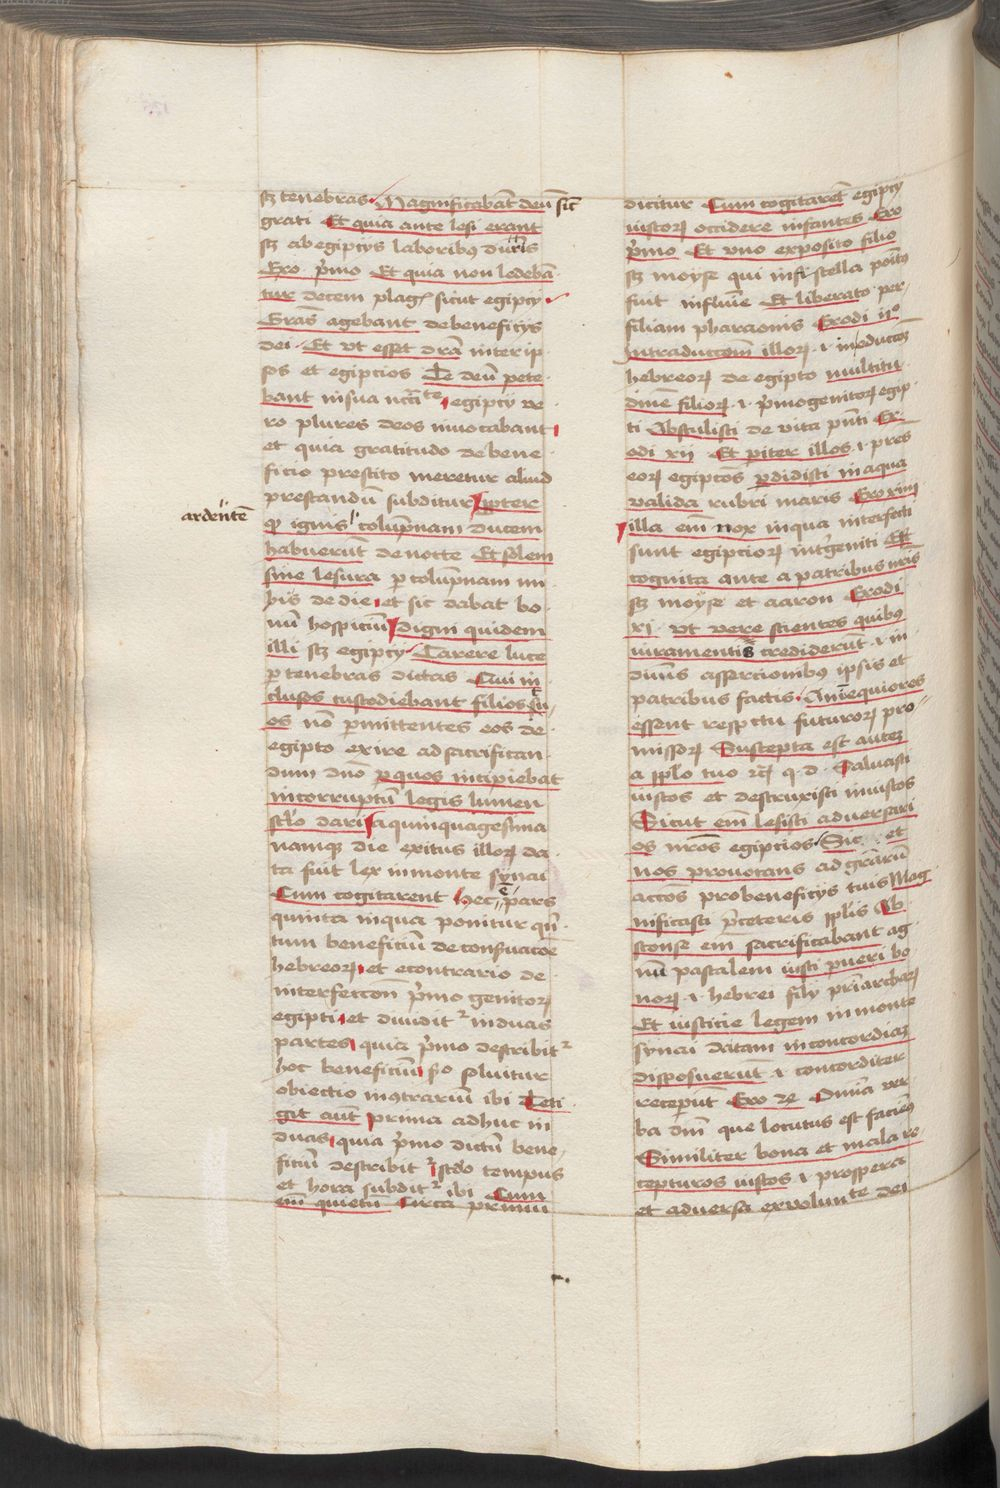 sz tenebras Magnificabāt deū sic
grati Et quia ante lesi erant
sz ab egipcijs laboribus duris
Exo p̄mo Et quia non ledebā
tur decem plagis sicut egipcij
Grās agebant de beneficijs
dei Et vt esset drā inter ip
sos et egipcios Te deū pete
bant in sua ncc̄ite egipcij ve
ro plures deos inuocabant
et quia gratitudo de bene
ficio prestito meretur aliud
prestandū subditur ꝓpter
qꝫ ignis colūpnam ducem
ardentē
habuerūt de nocte Et solem
sine lesura ꝑ colūpnam nu
bis de die et sic dabat bo
nū hospiciū Digni quidem
illi sz egipcij Carere luce
ꝑ tenebras dictas Qui in
clusos custodiebant filios tu
os nō ꝑmittentes eos de
egipto exire ad sacrifican
dum dn̄o ꝑ quos incipiebat
incorruptū legis lumen
sclo dari a quinquagesima
namqꝫ die exitus illoꝝ da
ta fuit lex in monte synai
Cum cogitarent hec pars
quinta in qua ponitur qn̄
tum beneficiū de conseruacōe
hebreoꝝ et econtrario de
interfeccōn p̄mo genitoꝝ
egipti et diuidit᷑ in duas
partes quia p̄mo describit᷑
hoc beneficiū sꝰo soluitur
obiectio in ꝯtrariū ibi Teti
git aūt prima adhuc in
duas quia p̄mo dictū bene
ficiū describit᷑ scdo tempus
et hora subdit᷑ ibi Cum
em̄ quietū Circa primū
dicitur Cum cogitarēt egipcij
iustoꝝ occidere infantes Exo
p̄mo Et vno exposito filio
sz moyse qui in fistella positus
fuit in flumīe Et liberato per
filiam pharaonis Exodi ijo
In traduccōm illoꝝ .i. in educcōꝫ
hebreoꝝ de egipto multitu
dinē filioꝝ .i. p̄mogenitoꝝ egip
ti Abstulisti de vita pn̄ti Ex
odi xij Et pariter illos .i. pr̄es
eoꝝ egipcios perdidisti in aqua
valida rubri maris Exo xiiij
illa em̄ nox in qua interfecti
sunt egipcioꝝ p̄mogeniti Est
cognita ante a patribus nr̄is
sz moyse et aaron Exodi
xj. vt vere scientes quibus
iuramentis crediderūt .i. in
diuīs assercionibus ipsis et
patribus factis Animequiores
essent respectu futuroꝝ pro
missoꝝ Suscepta est autez
a pplo tuo &c q.d. Saluasti
iustos et destruxisti iniustos
Sicut em̄ lesisti aduersari
os nr̄os egipcios Sic et
nos prouocans ad grāꝝ
actōs pro beneficijs tuis Mag
nificasti p̄ ceteris pplis Ab
sconse em̄ sacrificabant ag
nū pascalem iusti pueri bo
noꝝ .i. hebrei filij priarchaꝝ
Et iusticie legem in monte
synai datam in concordiaꝫ
disposuerūt .i. concorditer
receperūt Exo 24 Omnia ver
ba dn̄i que locutus est faciemꝰ
Similiter bona et mala re
cepturos iustos .i. prospera
et aduersa ex voluntate dei